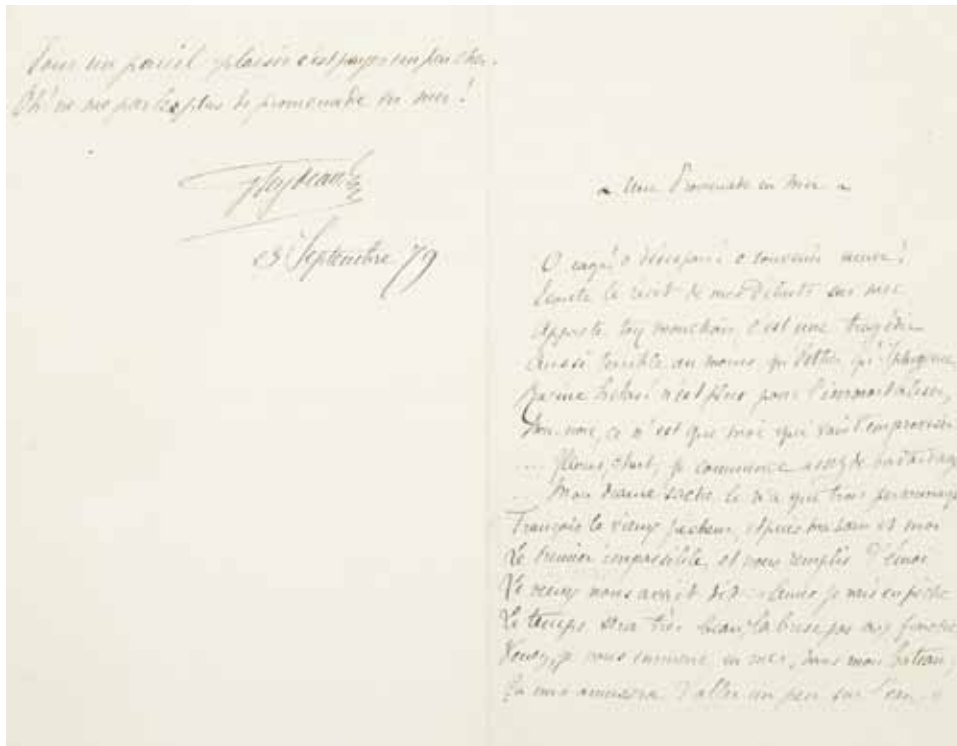 Pour un pareil plaisir c'est payer un peu cher.
Oh! ne me parlez plus de promenade en mer!
23 Septembre 79
~ Une Promenade en mer ~
O rage! o désespoir! o souvenir amer!
Ecoute le récit de mes débuts sur mer
Apprête ton mouchoir, c'est une tragédie
Aussi terrible au moins qu'Esther, qu'Iphigénie,
Racine hélas! n'est plus pour l'immortaliser,
Non, non, ce n'est que moi qui vais t'improviser
.... chut, je commence assez de
... Mon drame sache le n'a que trois personnages
François le vieux pêcheur, et puis ma sœur et moi
Le premier impassible, et nous remplis d'émoi
Le vieux nous avait dit : je vais en pêche
Le temps sera très beau, la brise pas trop fraîche
Venez, je vous emmène en mer, dans mon bateau,
Ça vous amusera d'aller un peu sur l'eau